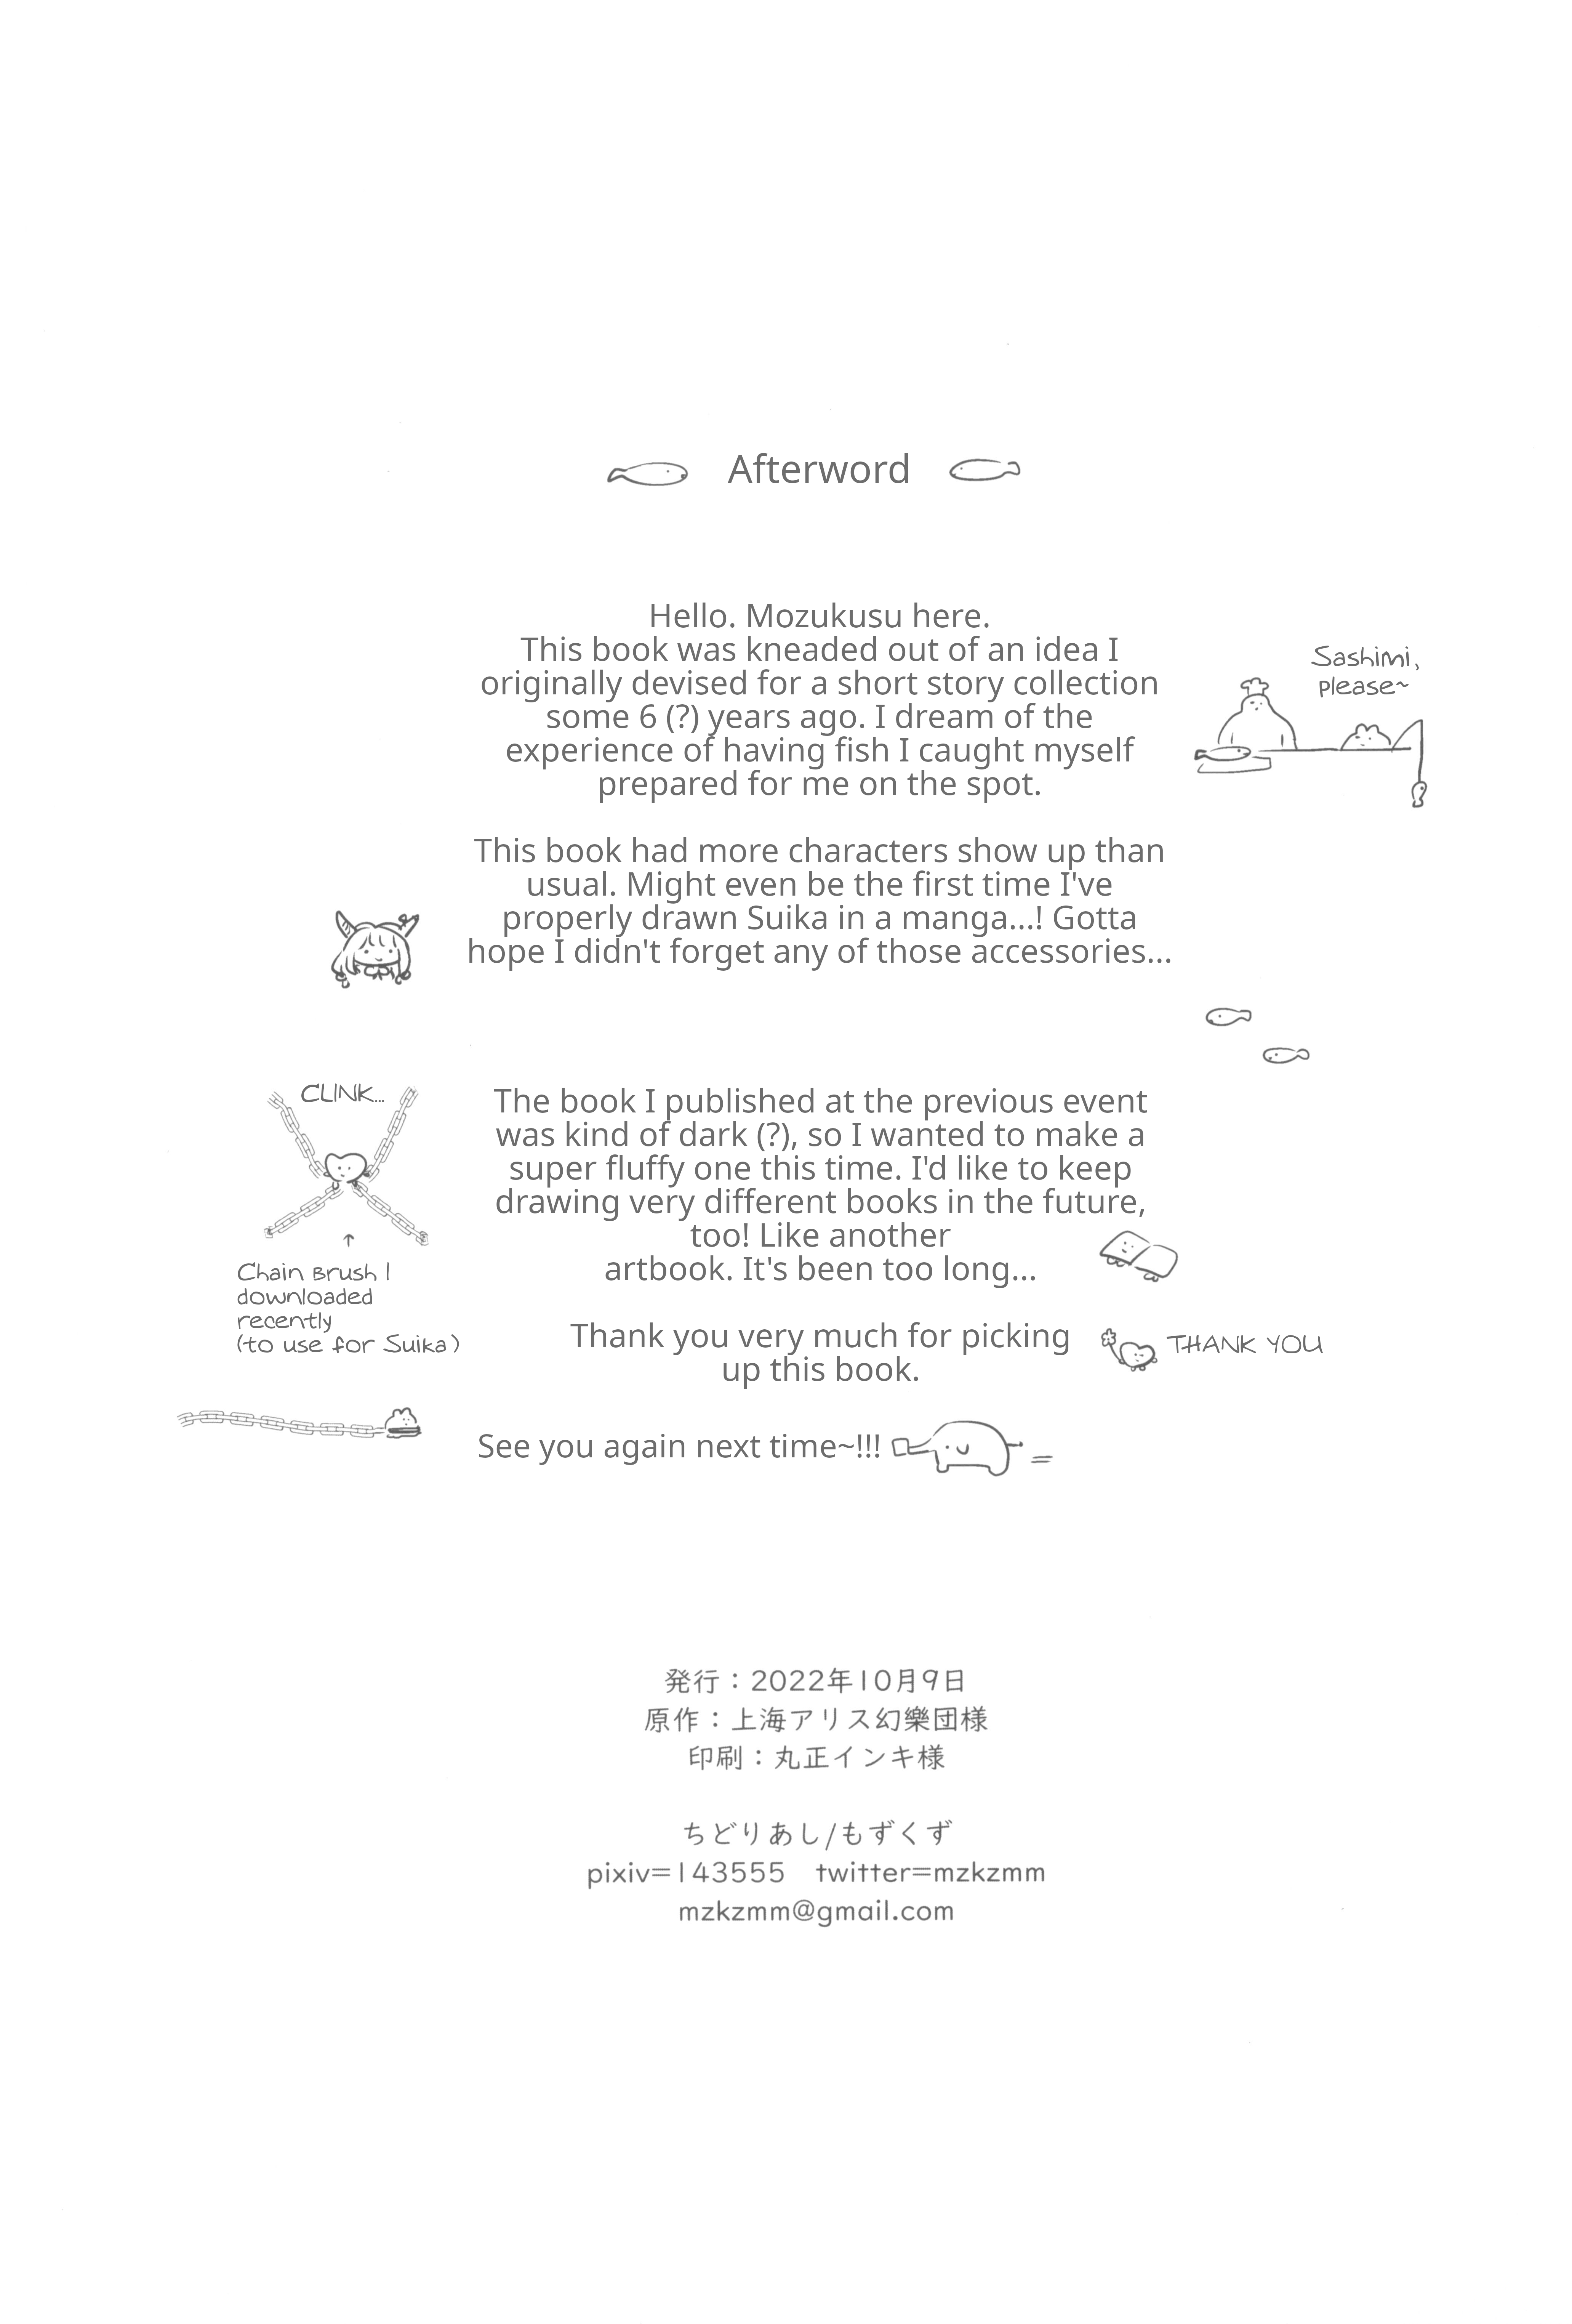 Afterword
Hello. Mozukusu here.
This book was kneaded out of an idea I
originally devised for a short story collection
some 6 (?) years ago. I dream of the
experience of having fish I caught myself
prepared for me on the spot.
Sashimi,
please~
This book had more characters show up than
usual. Might even be the first time I've
properly drawn Suika in a manga...! Gotta
hope I didn't forget any of those accessories...
CLINK...
Chain Brush I
downloaded
recently
(to use for Suika)
The book I published at the previous event
was kind of dark (?), so I wanted to make a
super fluffy one this time. I'd like to keep
drawing very different books in the future,
too! Like another
artbook. It's been too long...
Thank you very much for picking
up this book.
THANK YOU
See you again next time~!!!
発行：2022年10月9日
原作：上海アリス幻樂団様
印刷：丸正インキ様
ちどりあし/もずくず
pixiv=143555 twitter=mzkzmm
mzkzmm@gmail.com